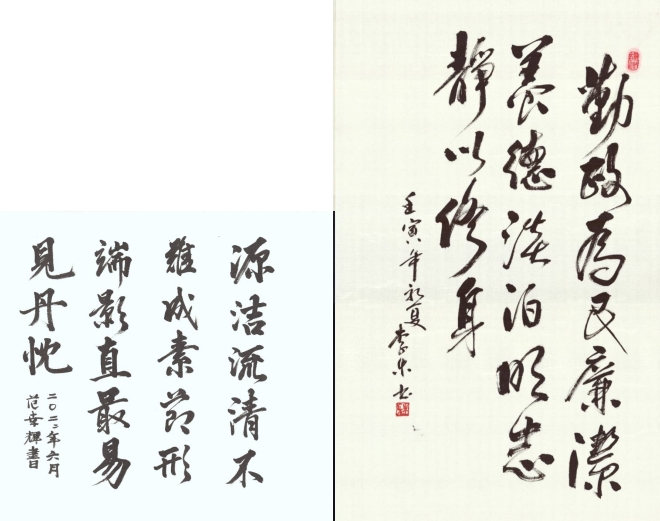 勤政為民廉潔
養德淡泊明志
靜以修身
壬寅年初夏
書
源洁流清不
難成素節形
端影直最易
見丹忱
二〇二二年六月
范幸輝書